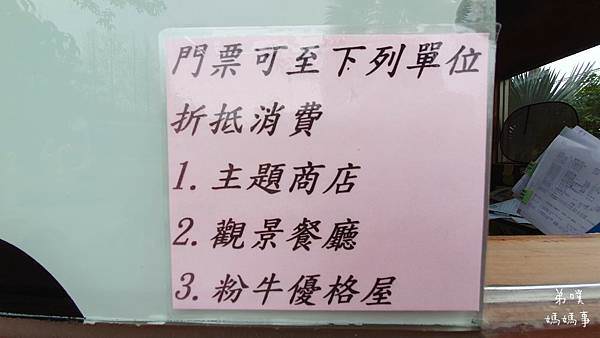 門票可至下列單位
折抵消費
1.主題商店
2.觀景餐廳
3.粉牛優格屋
弟噗
媽媽事